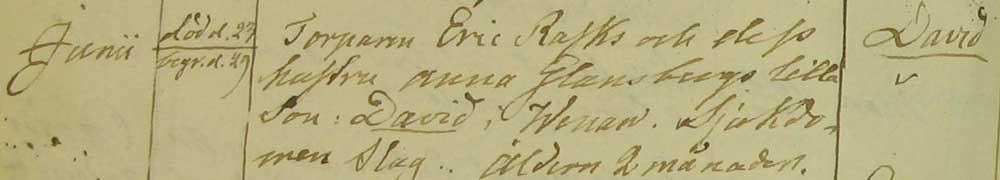 Junii
död d. 27
begr. d. 29
Torparen Eric Rasks och dess
hustru anna Glansbergs lilla
Son: David, i Wenan. Sjukdo-
men Slag.. Åldern 2 månader.
David